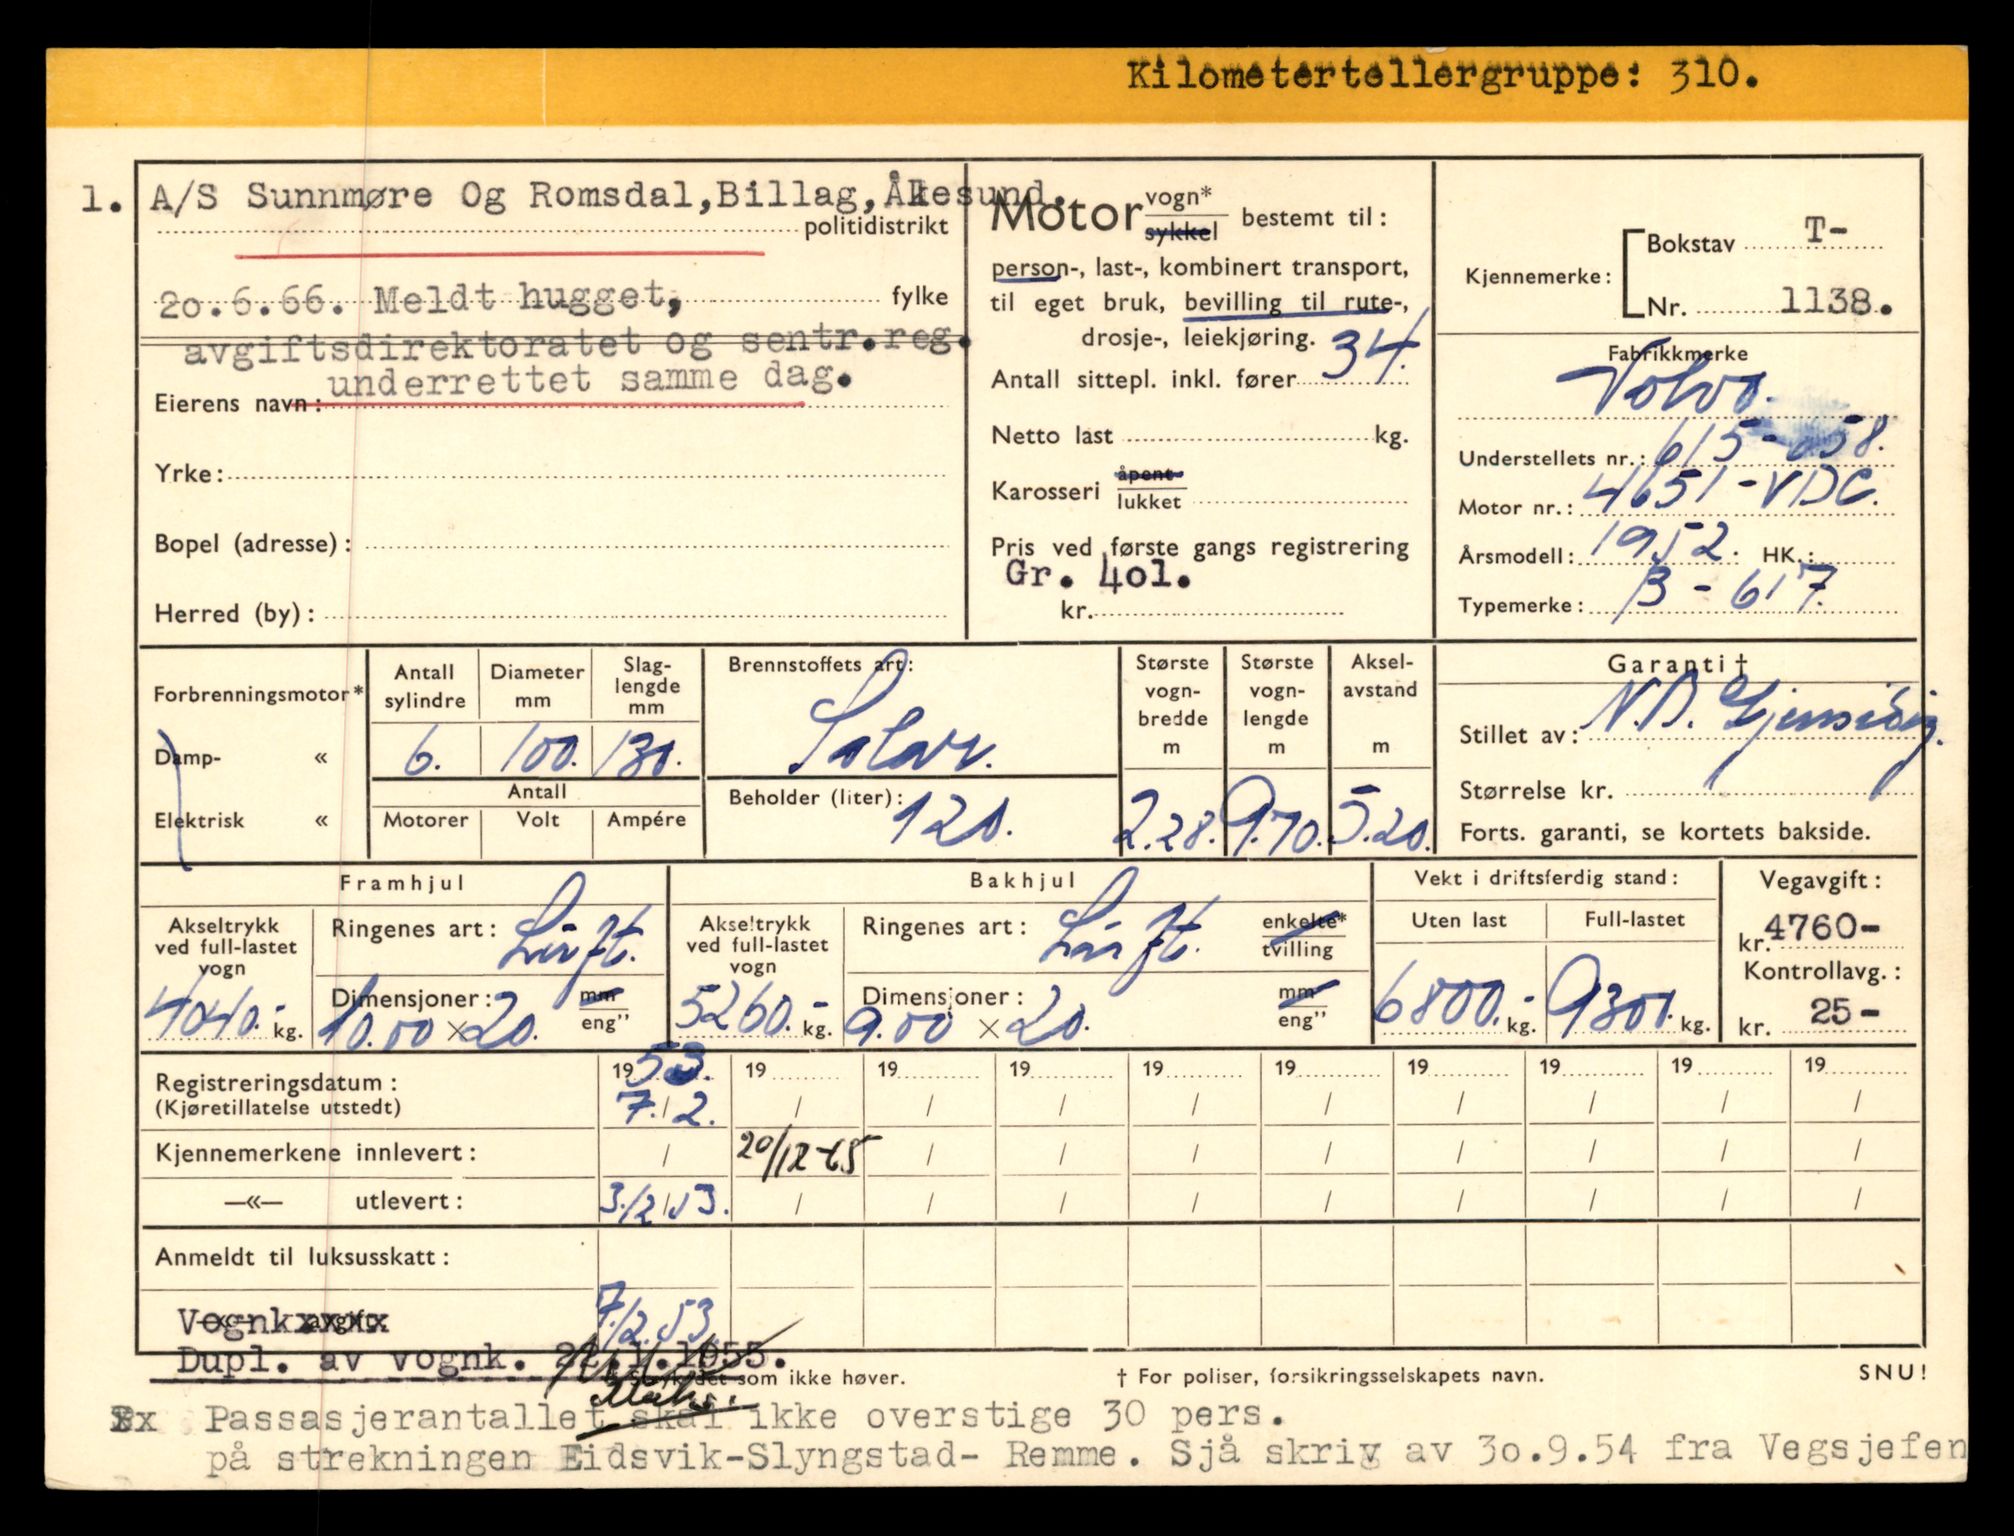 Kilometertellergruppe: 310.
1. A/S Sunnmøre Og Romsdal,Billag,Ålesund.
politidistrikt
20.6.66. Meldt hugget, fylke
avgiftsdirektoratet og sentr.reg.
underrettet samme dag.
Eierens navn:
Yrke:
Bopel (adresse):
Herred (by):
Motor vogn* sykkel bestemt til:
person-, last-, kombinert transport,
til eget bruk, bevilling til rute-,
drosje-, leiekjøring.
Antall sittepl. inkl. fører 34.
Netto last kg.
Karosseri åpent lukket
Pris ved første gangs registrering
Gr. 4o1.
kr.
Kjennemerke: Bokstav T-
Nr. 1138.
Fabrikkmerke
Volvo.
Understellets nr.: 615-658.
Motor nr.: 4651-VDC.
Årsmodell: 1952. HK.:
Typemerke: B-617.
Forbrenningsmotor*
Damp- «
Elektrisk «
Antall sylindre 6.
Diameter mm 100.
Slaglengde mm 130.
Antall
Motorer Volt Ampére
Brennstoffets art:
Solar.
Beholder (liter): 120.
Største vogn-bredde m 2.28.
Største vogn-lengde m 9.70.
Aksel-avstand m 5.20.
Garanti†
Stillet av: N.B. Gjensidig.
Størrelse kr.
Forts. garanti, se kortets bakside.
Framhjul
Akseltrykk ved full-lastet vogn 4040.- kg.
Ringenes art: Luft.
Dimensjoner: 10.00 × 20. mm eng"
Bakhjul
Akseltrykk ved full-lastet vogn 5260.- kg.
Ringenes art: Luft. enkelte* tvilling
Dimensjoner: 9.00 × 20. mm eng"
Vekt i driftsferdig stand:
Uten last 6800.- kg.
Full-lastet 9300. kg.
Vegavgift:
kr. 4760-
Kontrollavg.:
kr. 25-
Registreringsdatum: 1953. 19 19 19 19 19 19 19 19 19
(Kjøretillatelse utstedt) 7./2. / / / / / / / / /
Kjennemerkene innlevert: / 20/12-65 / / / / / / / /
—«— utlevert: 3./2 53. / / / / / / / / /
Anmeldt til luksusskatt:
Vognkxxxx 7./2.53.
Dupl. av vognk. 22.1.1955.
som ikke høver.
† For poliser, forsikringsselskapets navn.
SNU!
Passasjerantallet skal ikke overstige 30 pers.
på strekningen Eidsvik-Slyngstad- Remme. Sjå skriv av 3o.9.54 fra Vegsjefen